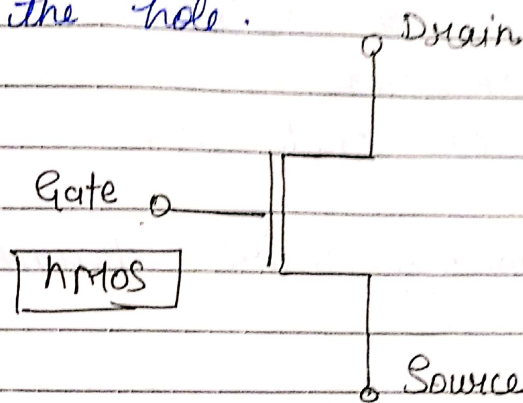 the hole.
Drain
Gate
nMOS
Source